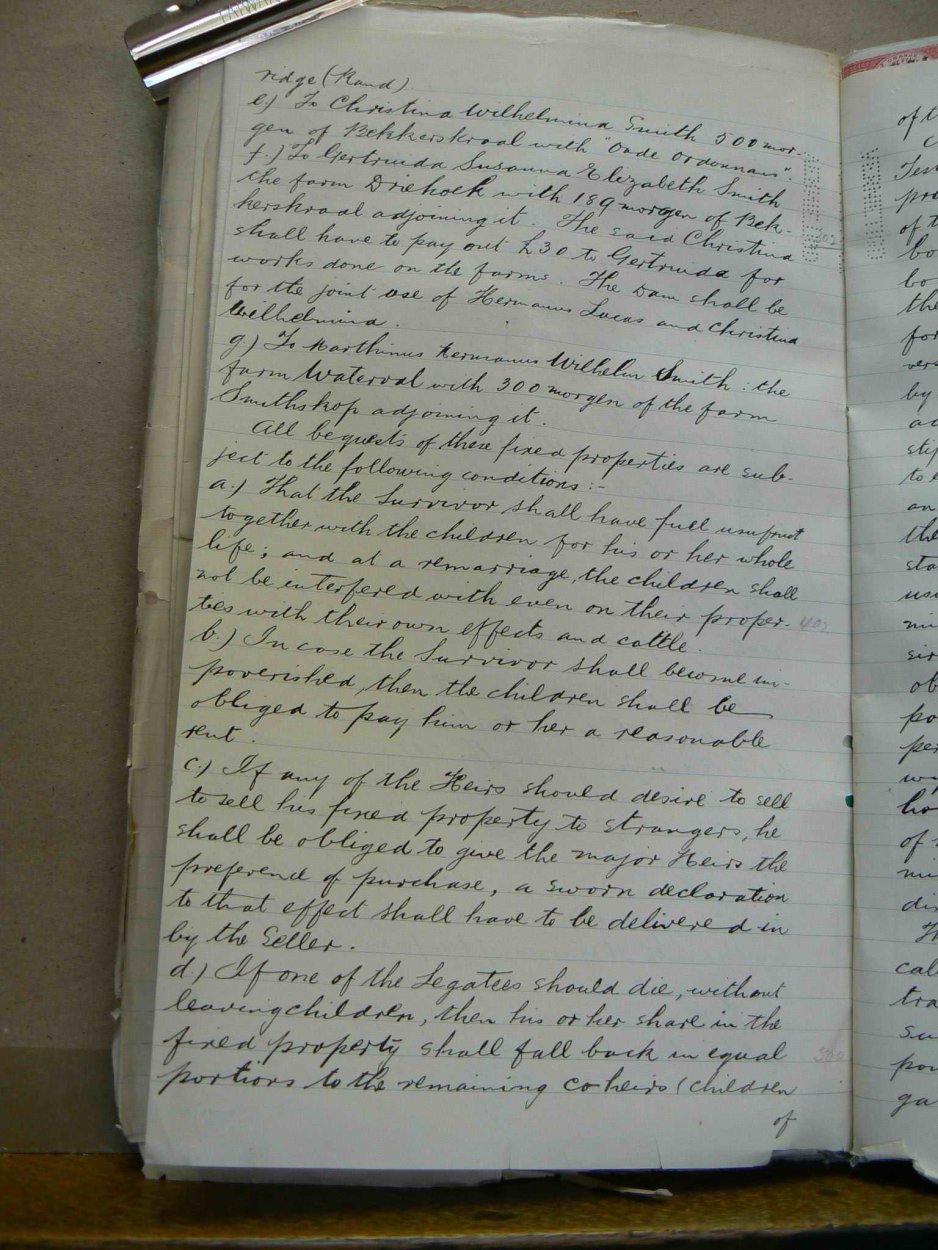 TAIWAN
ridge (Rand).
e.) To Christina Wilhelmina Smith 500 mor-
gen of Bekkerskraal with "Oude Ordonnans".
f.) To Gertruida Susanna Elizabeth Smith
the farm Driehoek with 189 morgen of Bek-
kerskraal adjoining it. The said Christina
shall have to pay out £30 to Gertruida for
works done on the farms. The Dam shall be
for the joint use of Hermanus Lucas and Christina
Wilhelmina.
g.) To Marthinus Hermanus Wilhelm Smith: the
farm Waterval with 300 morgen of the farm
Smithskop adjoining it.
All bequests of these fixed properties are sub-
ject to the following conditions:-
a.) That the Survivor shall have full usufruct
together with the children for his or her whole
life; and at a remarriage, the children shall
not be interfered with even on their proper-
ties with their own effects and cattle.
b.) In case the Survivor shall become im-
poverished, then the children shall be
obliged to pay him or her a reasonable
rent.
c.) If any of the Heirs should desire to sell
to sell his fixed property to strangers, he
shall be obliged to give the major Heirs the
preference of purchase, a sworn declaration
to that effect shall have to be delivered in
by the Seller.
d.) If one of the Legatees should die, without
leaving children, then his or her share in the
fixed property shall fall back in equal
portions to the remaining coheirs (children
of
of t
Test
pro
of t
bo
bo
the
for
vers
by
ac
stip
to e
an
the
sta
usu
mi
sir
ob
po
per
wi
ho
of
mi
di
Th
cal
tra
su
por
ga